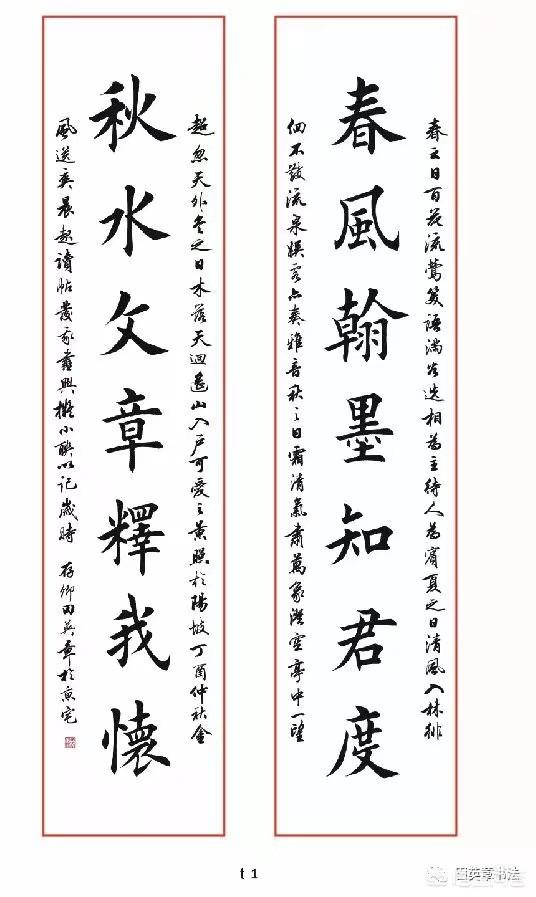 春之日百花流鶯笑語滿谷迭相為主待人為賓夏之日清風入林排
春風翰墨知君度
不發流泉娛客亦奏雅音秋之日霜清氣肅萬象澄空亭中一望
超忽天外冬之日木落天迴遠山入戶可愛之黃照於陽坡丁酉仲秋金
秋水文章釋我懷
風送爽晨起讀帖發家靠興擬小聯以記歲時 存卿田英章於京宅
t 1
田英章书法